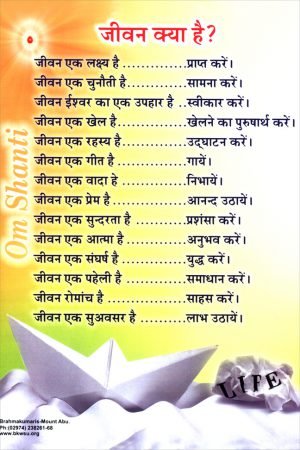 जीवन क्या है?
जीवन एक लक्ष्य है .............प्राप्त करें।
जीवन एक चुनौती है ............सामना करें।
जीवन ईश्वर का एक उपहार है ..स्वीकार करें।
जीवन एक खेल है...............खेलने का पुरुषार्थ करें।
जीवन एक रहस्य है .............उद्घाटन करें।
जीवन एक गीत है ...............गायें।
जीवन एक वादा हे ..............निभायें।
जीवन एक प्रेम है ...............आनन्द उठायें।
जीवन एक सुन्दरता है ..........प्रशंसा करें।
जीवन एक आत्मा है ............अनुभव करें।
जीवन एक संघर्ष है .............युद्ध करें।
जीवन एक पहेली है .............समाधान करें।
जीवन रोमांच है .................साहस करें।
जीवन एक सुअवसर है ..........लाभ उठायें।
Om Shanti
LIFE
Brahmakumaris-Mount Abu.
Ph (02974) 238261-68
www.bkwsu.org